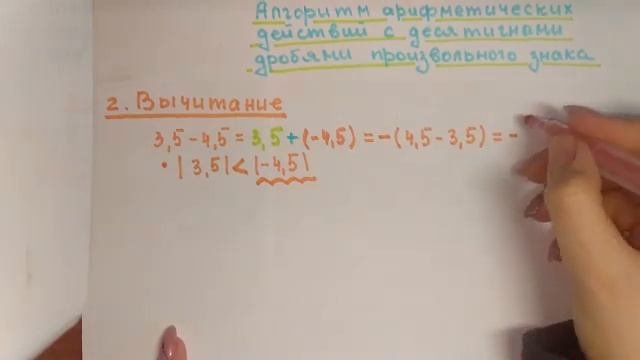 Алгоритм арифметических
действий с десятичными
дробями произвольного знака
2. Вычитание
3,5 - 4,5 = 3,5 + (-4,5) = -(4,5 - 3,5) = -
• |3,5| < |-4,5|